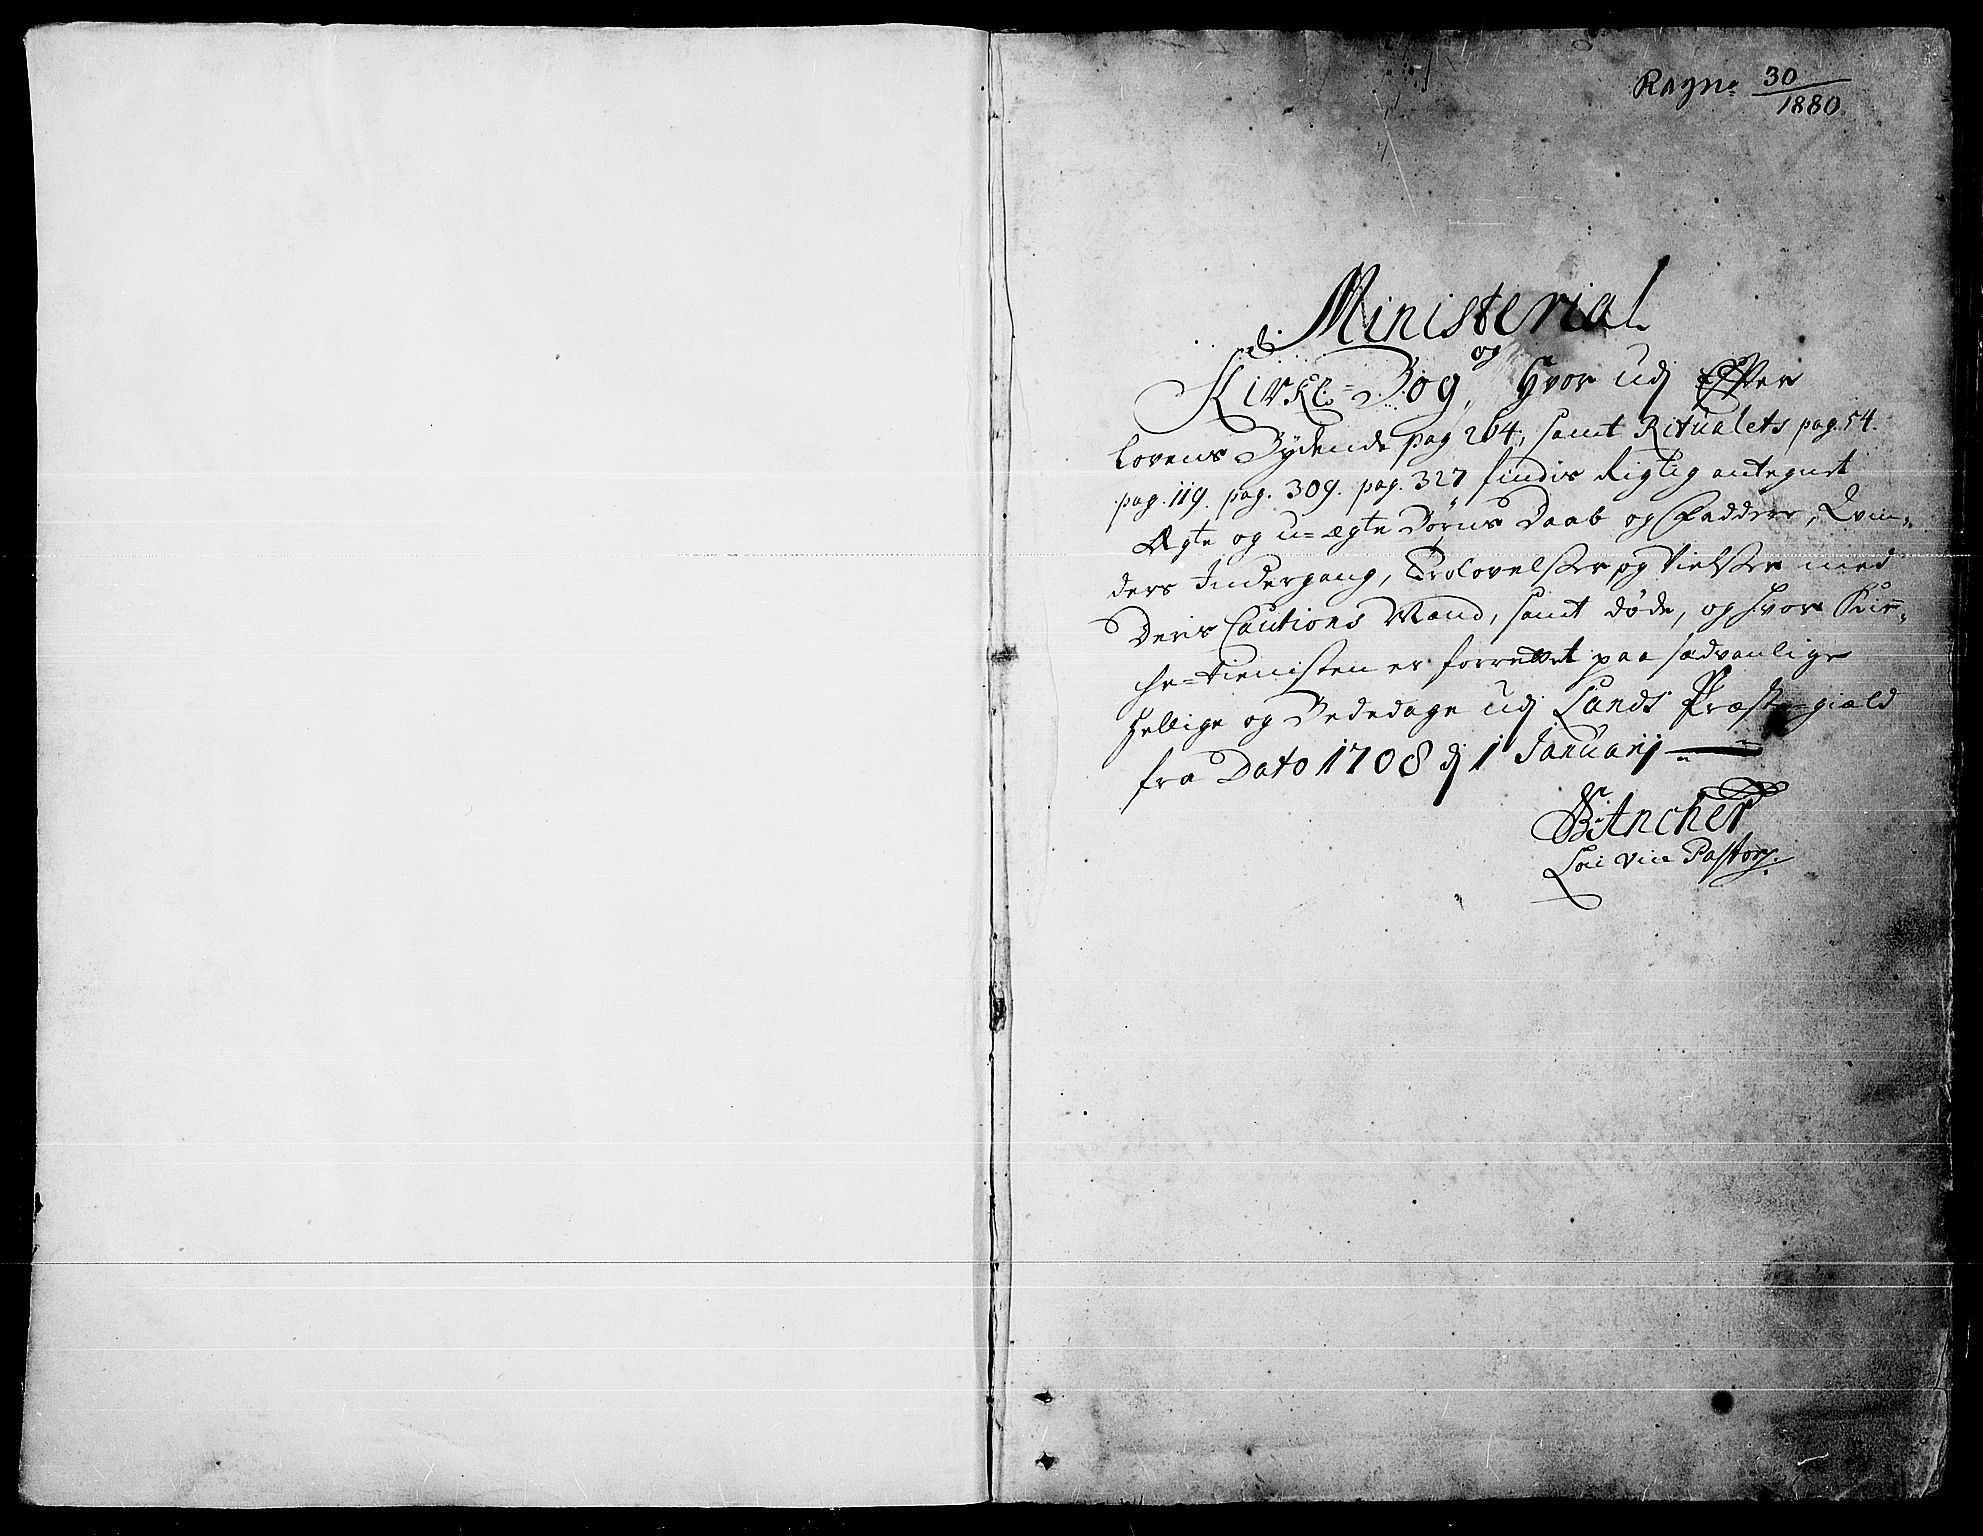 30
1880
Ministerial
og
Kirke-Bog, hvor udj Efter
Lovens Bydende pag 264, samt Ritualets pag. 54.
pag. 119. pag. 309. pag. 327 findis Rigtig antegnet
Ægte og u-ægte Børns Daab og Faddere, Qvin-
ders Indergang, Trolovelser og Vielser med
Deris Cautions Mænd, samt døde, og hvor Kir-
ke-Tienisten er forrettet paa sædvanlige
Hellige og Bededage udj Lands Præste-giæld
fra Dato 1708 dj 1 Januarij
Ancher
Loci vice Pastor.